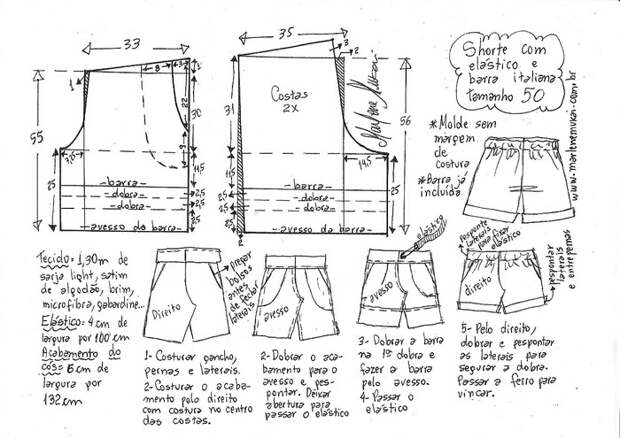 33
8
3
1
1
22
30
9
55
7,5
11,5
25
25
-barra-
-dobra-
-dobra-
2,5
2,5
2,5
-avesso da barra-
35
3
2
31
Costas
2X
56
14,5
11,5
25
-barra-
-dobra-
-dobra-
2,5
2,5
-avesso da barra-
2
Marlene Mukai
Shorte com
elástico e
barra italiana
tamanho 50
www.marlenemukai.com.br
*Molde sem
margem
de
costura
*Barra já
incluída
Tecido: 1,30m de
sarja light, satim
de algodão, brim,
microfibra, gabardine...
Elástico: 4 cm de
largura por 100 cm
Acabamento do
cós: 6 cm de
largura por
132 cm
Direito
Prepar
bolsos
antes
de fechar
laterais
1- Costurar gancho,
pernas e laterais.
2- Costurar o acaba-
mento pelo direito
com costura no centro
das costas.
avesso
2- Dobrar o aca-
bamento para o
avesso e pes-
pontar. Deixar
abertura para
passar o elástico
elástico
avesso
3- Dobrar a barra
na 1ª dobra e
fazer a barra
pelo avesso.
4- Passar o
elástico
Pesponte
laterais
para fixar
elástico
direito
pespontar
laterais
e entrepernas
5- Pelo direito,
dobrar e pespontar
as laterais para
segurar a dobra.
Passar a ferro para
vincar.